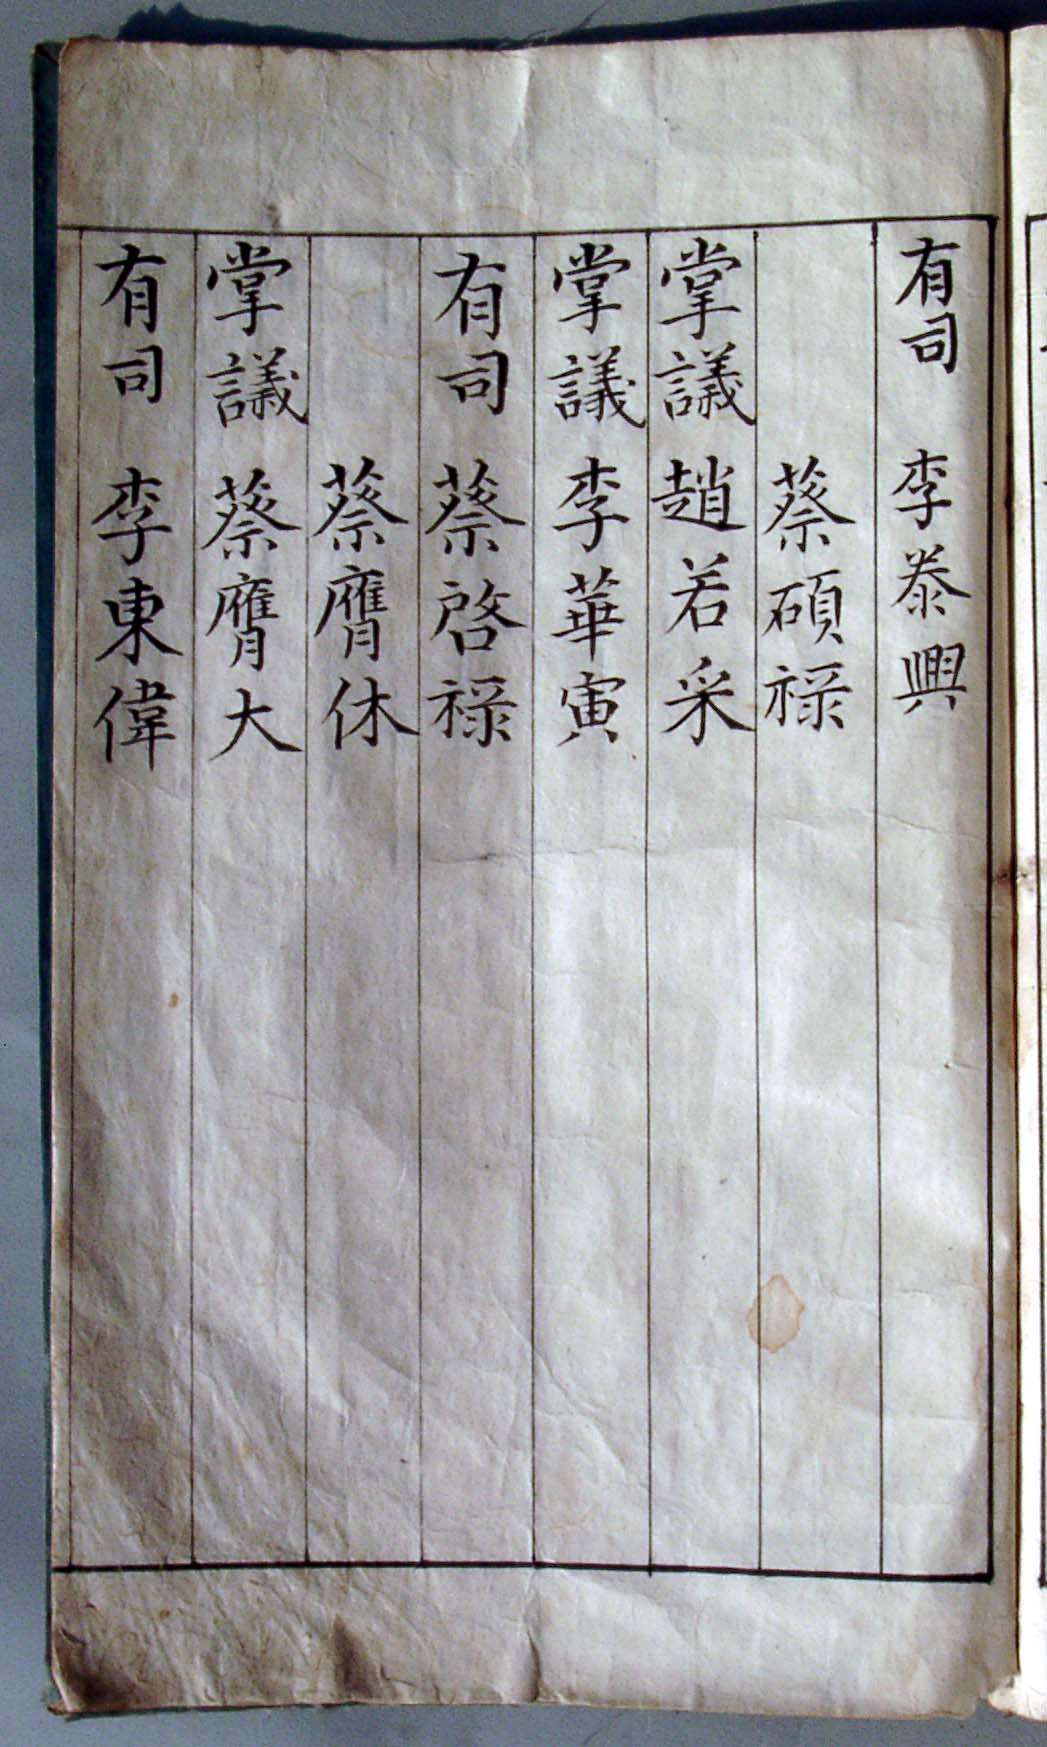 有司 李泰興
蔡碩祿
掌議 趙若采
掌議 李華寅
有司 蔡啓祿
蔡膺休
掌議 蔡膺大
有司 李東偉